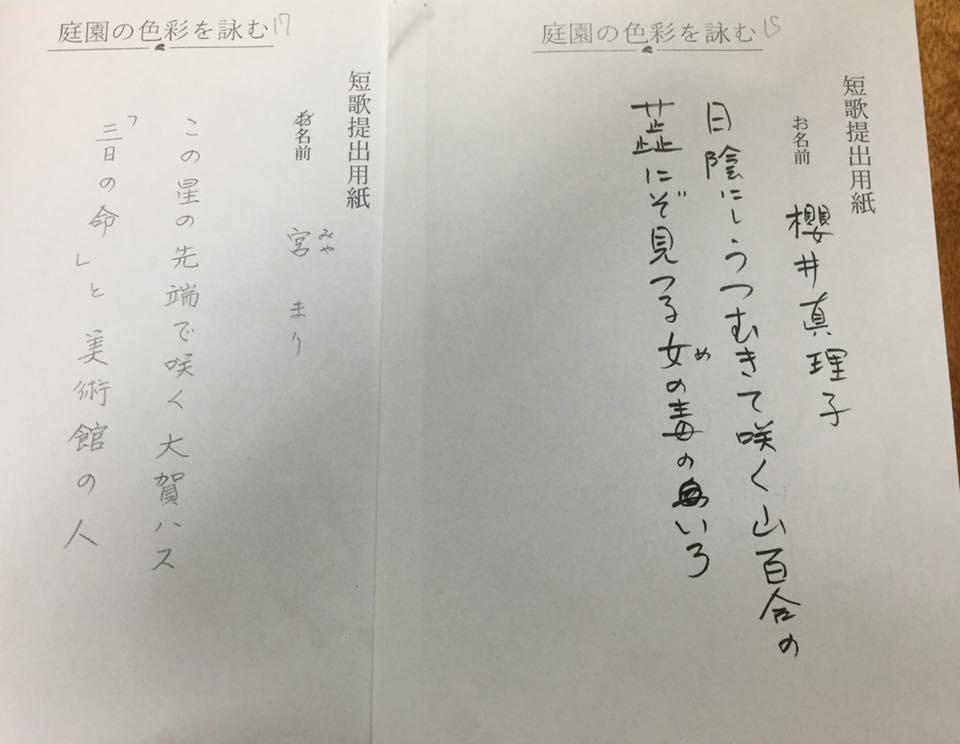 庭園の色彩を詠む 15
短歌提出用紙
お名前 櫻井真理子
日陰にしうつむきて咲く山百合の
蕋にぞ見つる女の毒のいろ
め
庭園の色彩を詠む 17
短歌提出用紙
お名前 宮 まり
みや
この星の先端で咲く大賀ハス
「三日の命」と美術館の人